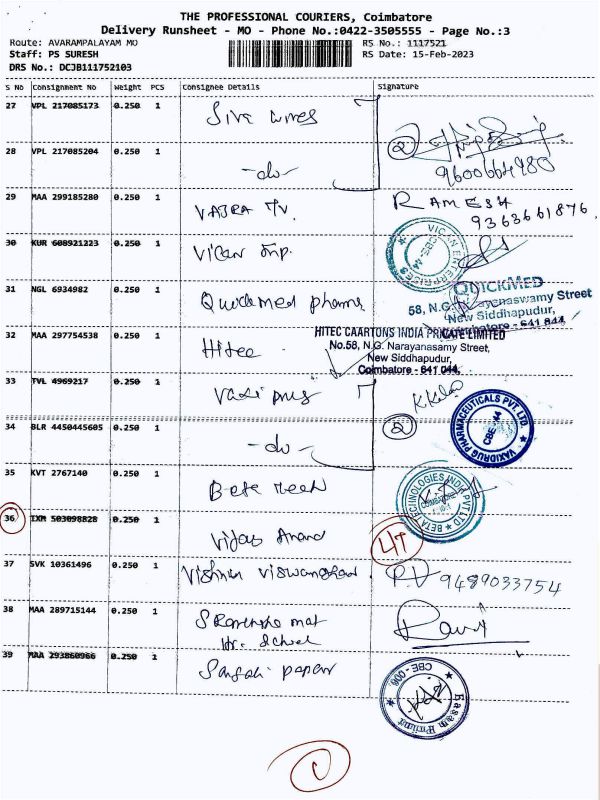 THE PROFESSIONAL COURIERS, Coimbatore
Delivery Runsheet - MO - Phone No.:0422-3505555 - Page No.:3
Route: AVARAMPALAYAM MO RS No.: 1117521
Staff: PS SURESH RS Date: 15-Feb-2023
DRS No.: DCJB111752103
S No Consignment No Weight PCS Consignee Details Signature
27 VPL 217085173 0.250 1
28 VPL 217085204 0.250 1 -do- 2
9600664980
29 MAA 299185280 0.250 1 RAMESH
9363661876
30 KUR 608921223 0.250 1 VICAN ENTERPRISES CBE-44
31 NGL 6934982 0.250 1 QUICKMED
58, N.G. Narayenaswamy Street
New Siddhapudur,
Coimbatore - 641 044
32 MAA 297754538 0.250 1 Hitec HITEC CAARTONS INDIA PRIVATE LIMITED
No.58, N.G. Narayanasamy Street,
New Siddhapudur,
Coimbatore - 641 044.
33 TVL 4969217 0.250 1
34 BLR 4450445605 0.250 1 -do- 2 VAXIDRUG PHARMACEUTICALS PVT. LTD. CBE-44
35 KVT 2767140 0.250 1 Beta Tech BETA TECHNOLOGIES INDIA PVT LTD
36 IXM 503098828 0.250 1 Vijay Anand
37 SVK 10361496 0.250 1 Vishnu Viswanathan P.V 9489033754
38 MAA 289715144 0.250 1 Ravi
39 MAA 293860966 0.250 1 CBE-006